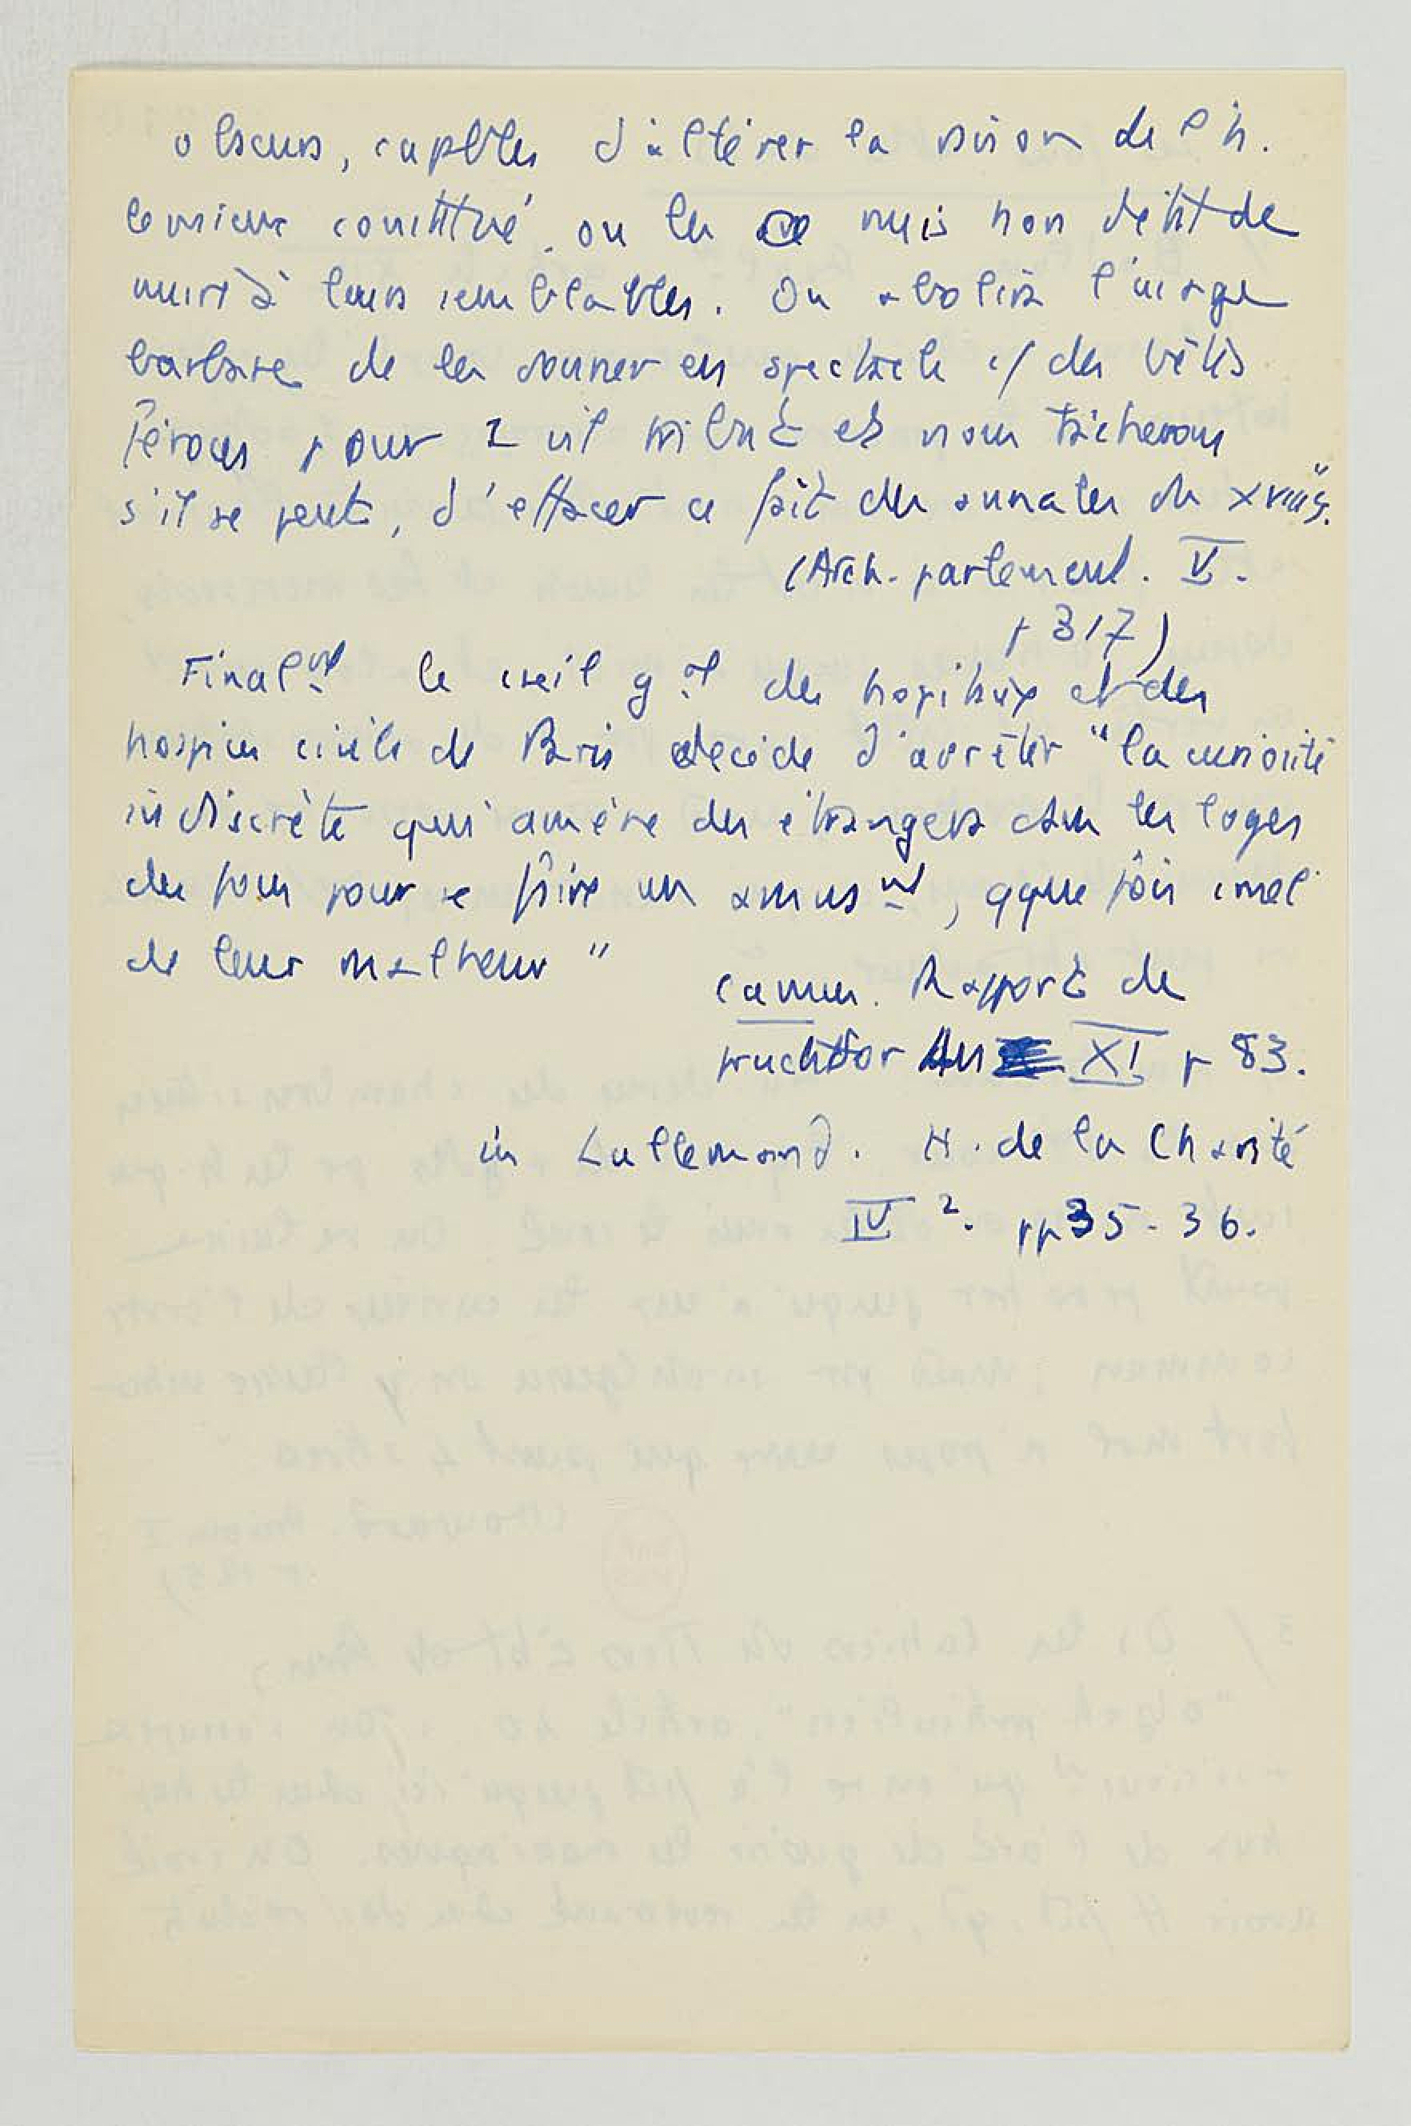 obscurs, capbles d'altérer la raison de l'h.
le mieux constitué. on les a mis hors d'état de
nuire à leurs semblables. On abolira l'usage
barbare de les donner en spectacle c/ des bêtes
féroces pour 1 vil tribut et nous tâcherons
s'il se peut, d'effacer ce fait des annales du XVIIIe s."
(Arch. parlement. V.
p 317)
Finalnt le cseil gal des hopitaux et des
hospices civils de Paris décide d'arrêter "la curiosité
indiscrète qui amène des étrangers dans les loges
des fous pour se faire un amusnt, qque fois cruel
de leur malheur"
Camus. Rapport de
fructidor An XI p 83.
in Lallemand. H. de la Charité
IV 2. pp 35-36.